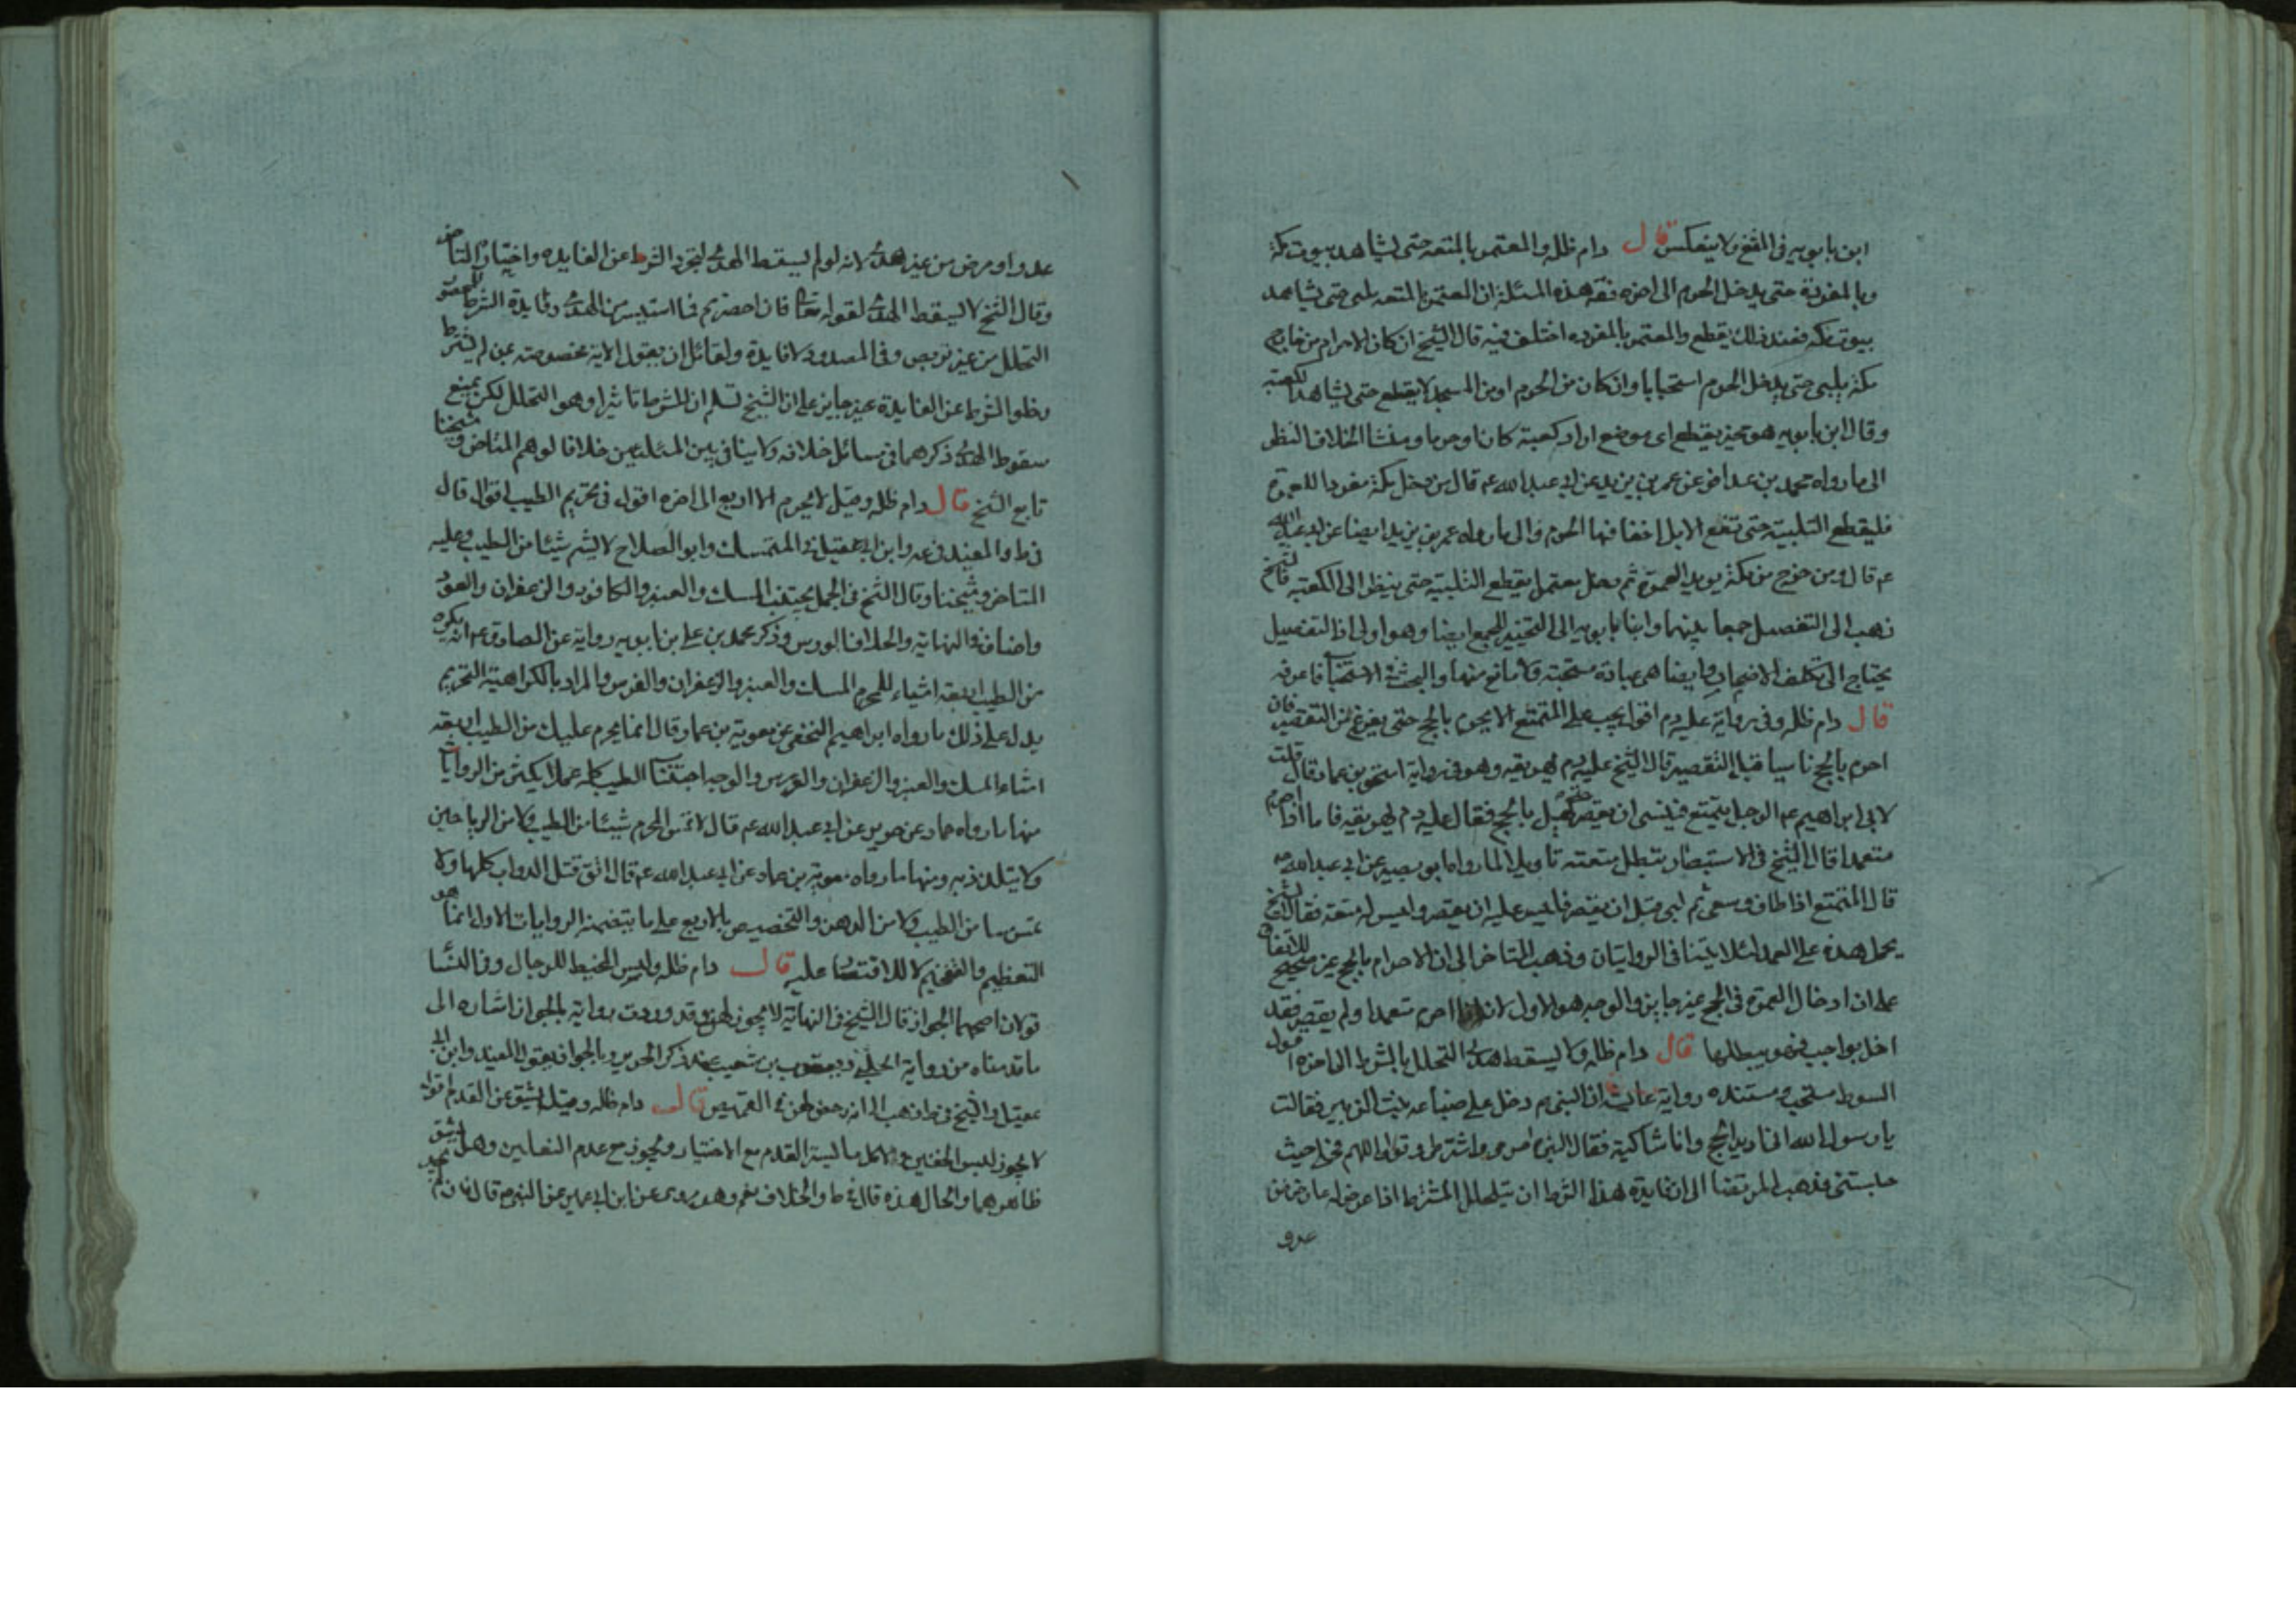 ابن بابويه في المقنع ولا ينعكس قال دام ظله والمعتمر بالمتعة حتى يشاهد بيوت مكة
وبالمفردة حتى يدخل الحرم الى اخره فقه هذه المسئلة ان المعتمر بالمتعة يلبى حتى يشاهد
بيوت مكة فعند ذلك يقطع والمعتمر بالمفرده اختلف فيه قال الشيخ ان كان الاحرام من خارج
مكة يلبى حتى يدخل الحرم استحبابا وان كان من الحرم او من المسجد لا يقطع حتى يشاهد الكعبة
وقال ابن بابويه هو مخير يقطع اى موضع اراد كعبة كانا وحرما ومنشا الخلاف النظر
الى ما رواه محمد بن عذافر عن عمر بن يزيد عن ابى عبد الله عم قال من دخل مكة مفردا للعمرة
فليقطع التلبية حتى تضع الابل اخفافها الحرم والى ما رواه عمر بن يزيد ايضا عن ابى عبد الله
عم قال ومن خرج من مكة يريد العمرة ثم دخل معتمرا يقطع التلبية حتى ينظر الى الكعبة فالشيخ
ذهب الى التفصيل جمعا بينهما وابنا بابويه الى التخيير للجمع ايضا وهو اولى اذ التفصيل
يحتاج الى تكلف الاضمار وايضا هى عبادة مستحبة ولا مانع منها والبحث في الاستحباب فاعرفه
قال دام ظله وفي رواية عليه دم اقول يجب على المتمتع الا يحرم بالحج حتى يفرغ من التقصير فان
احرم بالحج ناسيا قبل التقصير قال الشيخ عليه دم يهريقه وهو في رواية اسحق بن عمار قال قلت
لابى ابراهيم عم الرجل يتمتع فينسى ان يقصر حتى يهل بالحج فقال عليه دم يهريقه فاما اذا احرم
متعمدا قال الشيخ في الاستبصار تبطل متعته تاويلا لما رواه ابو بصير عن ابى عبد الله عم
قال المتمتع اذا طاف وسعى ثم لبى قبل ان يقصر فليس عليه ان يقصر وليس له متعة فقال الشيخ
يحمل هذه على العمد لئلا يتنافى الروايتان وذهب المتاخر الى ان الاحرام بالحج غير صحيح للاتفاق
على ان ادخال العمرة في الحج غير جايز والوجه هو الاول لانه اذا احرم متعمدا ولم يقصر فقد
اخل بواجب فهو يبطلها قال دام ظله ولا يسقط هدى التحلل بالشرط الى اخره اقول
الشرط مستحب ومستنده رواية عايشة ان النبى م دخل على ضباعة بنت الزبير فقالت
يا رسول الله انا اريد الحج وانا شاكية فقال النبى احرمى واشترطى وقولى اللهم فحلنى حيث
حبستنى فذهب المرتضا الى ان فايدة هذا الشرط ان يتحلل المشترط اذا عرض له عارض من
عدو
عدو او مرض من غير هدى لانه لو لم يسقط الهدى لتجرد الشرط عن الفايده واختاره المتاخر
وقال الشيخ لا يسقط الهدى لقوله تعا فان احصرتم فما استيسر من الهدى وفايدة الشرط للمحصور
التحلل من غير تربص وفي المصدود لا فايدة ولقائل ان يقول الاية مخصوصة بمن لم يشترط
وخلو الشرط عن الفايدة غير جايز على ان الشيخ تسلم ان للشرط تاثيرا وهو التحلل لكن يمنع
سقوط الهدى ذكرهما في مسائل خلافه ولا ينافي بين المسئلتين خلافا لوهم المتاخر وشيخنا
تابع الشيخ قال دام ظله وقيل لا يحرم الا اربع الى اخره اقول في تحريم الطيب اقوال قال
في ط والمفيد في عه وابن ابى عقيل في المتمسك وابو الصلاح لا يشم شيئا من الطيب وعليه
المتاخر وشيخنا وقال الشيخ في الجمل يجتنب المسك والعنبر والكافور والزعفران والعود
واضاف في النهاية والخلاف الورس وذكر محمد بن على بن بابويه رواية عن الصادق عم انه يكره
من الطيب اربعة اشياء للمحرم المسك والعنبر والزعفران والورس والمراد بالكراهية التحريم
يدل على ذلك ما رواه ابراهيم النخعى عن معوية بن عمار قال انما يحرم عليك من الطيب اربعة
اشياء المسك والعنبر والزعفران والورس والوجه اجتناب الطيب كله عملا بكثير من الروايات
منها ما رواه حماد عن حريز عن ابى عبد الله عم قال لا تمس المحرم شيئا من الطيب ولا من الرياحين
ولا يتلذذ به ومنها ما رواه معوية بن عمار عن ابى عبد الله عم قال اتق قتل الدواب كلها ولا
تمس شيئا من الطيب ولا من الدهن والتخصيص بالاربع على ما يتضمنه الروايات الاول انما هو
التعظيم والتفخيم لا للاقتصار عليه قال دام ظله ولبس المخيط للرجال وفي النسا
قولان اصحهما الجواز قال الشيخ في النهاية لا يجوز لهن وقد وردت رواية بالجواز اشاره الى
ما قدمناه من رواية الحلبى ويعقوب بن شعيب عند ذكر الحرير وبالجواز يقول المفيد وابن ابى
عقيل والشيخ في ط ذهب الى انه رخص لهن في القميص قال دام ظله وقيل يشق عن القدم اقول
لا يجوز لبس الخفين ولا كل ما يستر القدم مع الاختيار ويجوز مع عدم النعلين وهل يشق
ظاهرهما والحال هذه قال في ط والخلاف نعم وهو روى عن ابن ابى عمير عن النبى م قال فان لم يجد